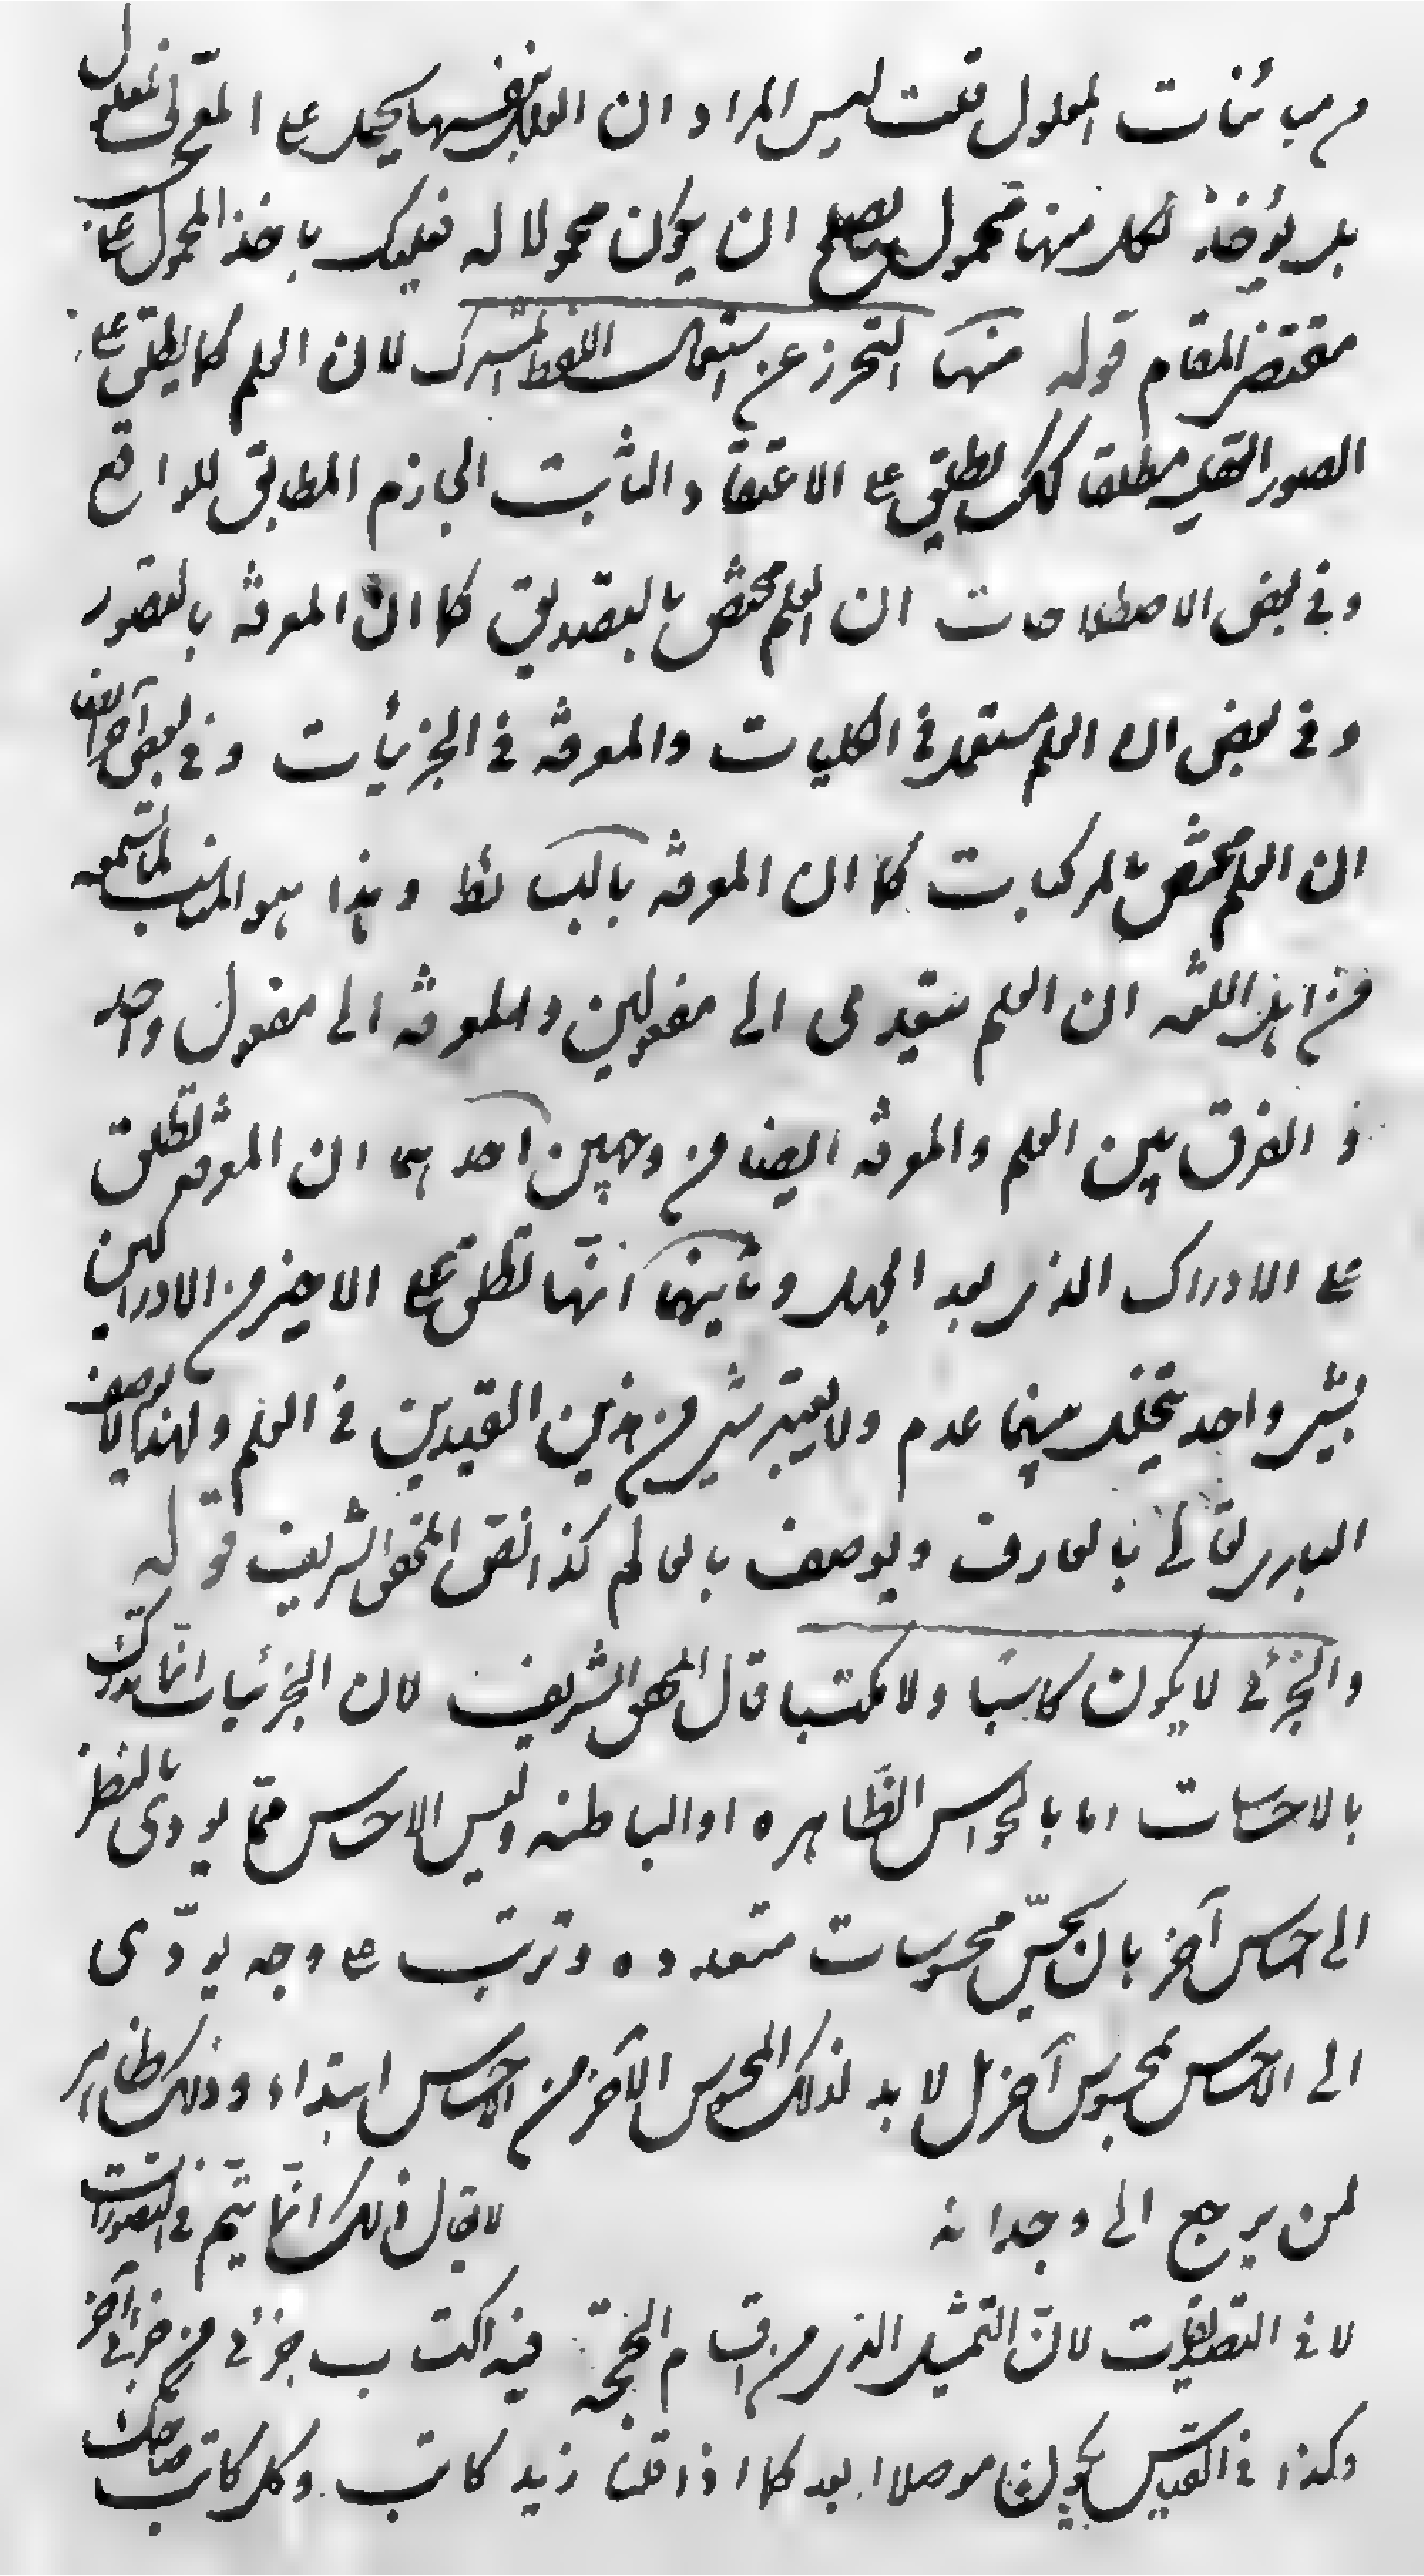 من مباينات المعلول قلت ليس المراد ان العلل بنفسها يحمل على المعلول
بل يؤخذ لكل منها محمول يصلح ان يكون محمولا له فعليك باخذ المحمول على
مقتضى المقام قوله منها التحرز عن استعمال اللفظ المشترك لان العلم كما يطلق على
الصور العقلية مطلقا كك يطلق على الاعتقاد الثابت الجازم المطابق للواقع
وفي بعض الاصطلاحات ان العلم مختص بالتصديق كما ان المعرفة بالتصور
وفي بعض ان العلم مستعمل في الكليات والمعرفة في الجزئيات وفي بعض آخر ايضا
ان العلم مختص بالمركبات كما ان المعرفة بالبسائط وهذا هو المناسب لما تسمعه
من اهل اللغة ان العلم يتعدى الى مفعولين والمعرفة الى مفعول واحد
ذ الفرق بين العلم والمعرفة ايضا من وجهين احدهما ان المعرفة تطلق
على الادراك الذي بعد الجهل وثانيهما انها تطلق على الاخير من الادراكين
بشيء واحد يتخلل بينهما عدم ولا يعتبر شيء من هذين القيدين في العلم ولهذا لا يوصف
الباري تعالى بالعارف ويوصف بالعالم كذا نص المحقق الشريف قوله
والجزئي لا يكون كاسبا ولا مكتسبا قال المحقق الشريف لان الجزئيات انما تدرك
بالاحساسات اما بالحواس الظاهره او الباطنه وليس الاحساس مما يودى بالنظر
الى احساس آخر بان يحس محسوسات متعدده وترتب على وجه يودّى
الى الاحساس بمحسوس آخر بل لا بد لذلك المحسوس الآخر من احساس ابتداء وذلك ظاهر
لمن يرجع الى وجدانه لا يقال ذلك انما يتم في التصورات
لا في التصديقات لان التمثيل الذي من اقسام الحجة فيه اكتساب جزئي من جزئي آخر
وكذا في القياس يكون موصلا ابعد كما اذا قلنا زيد كاتب وكل كاتب ضاحك